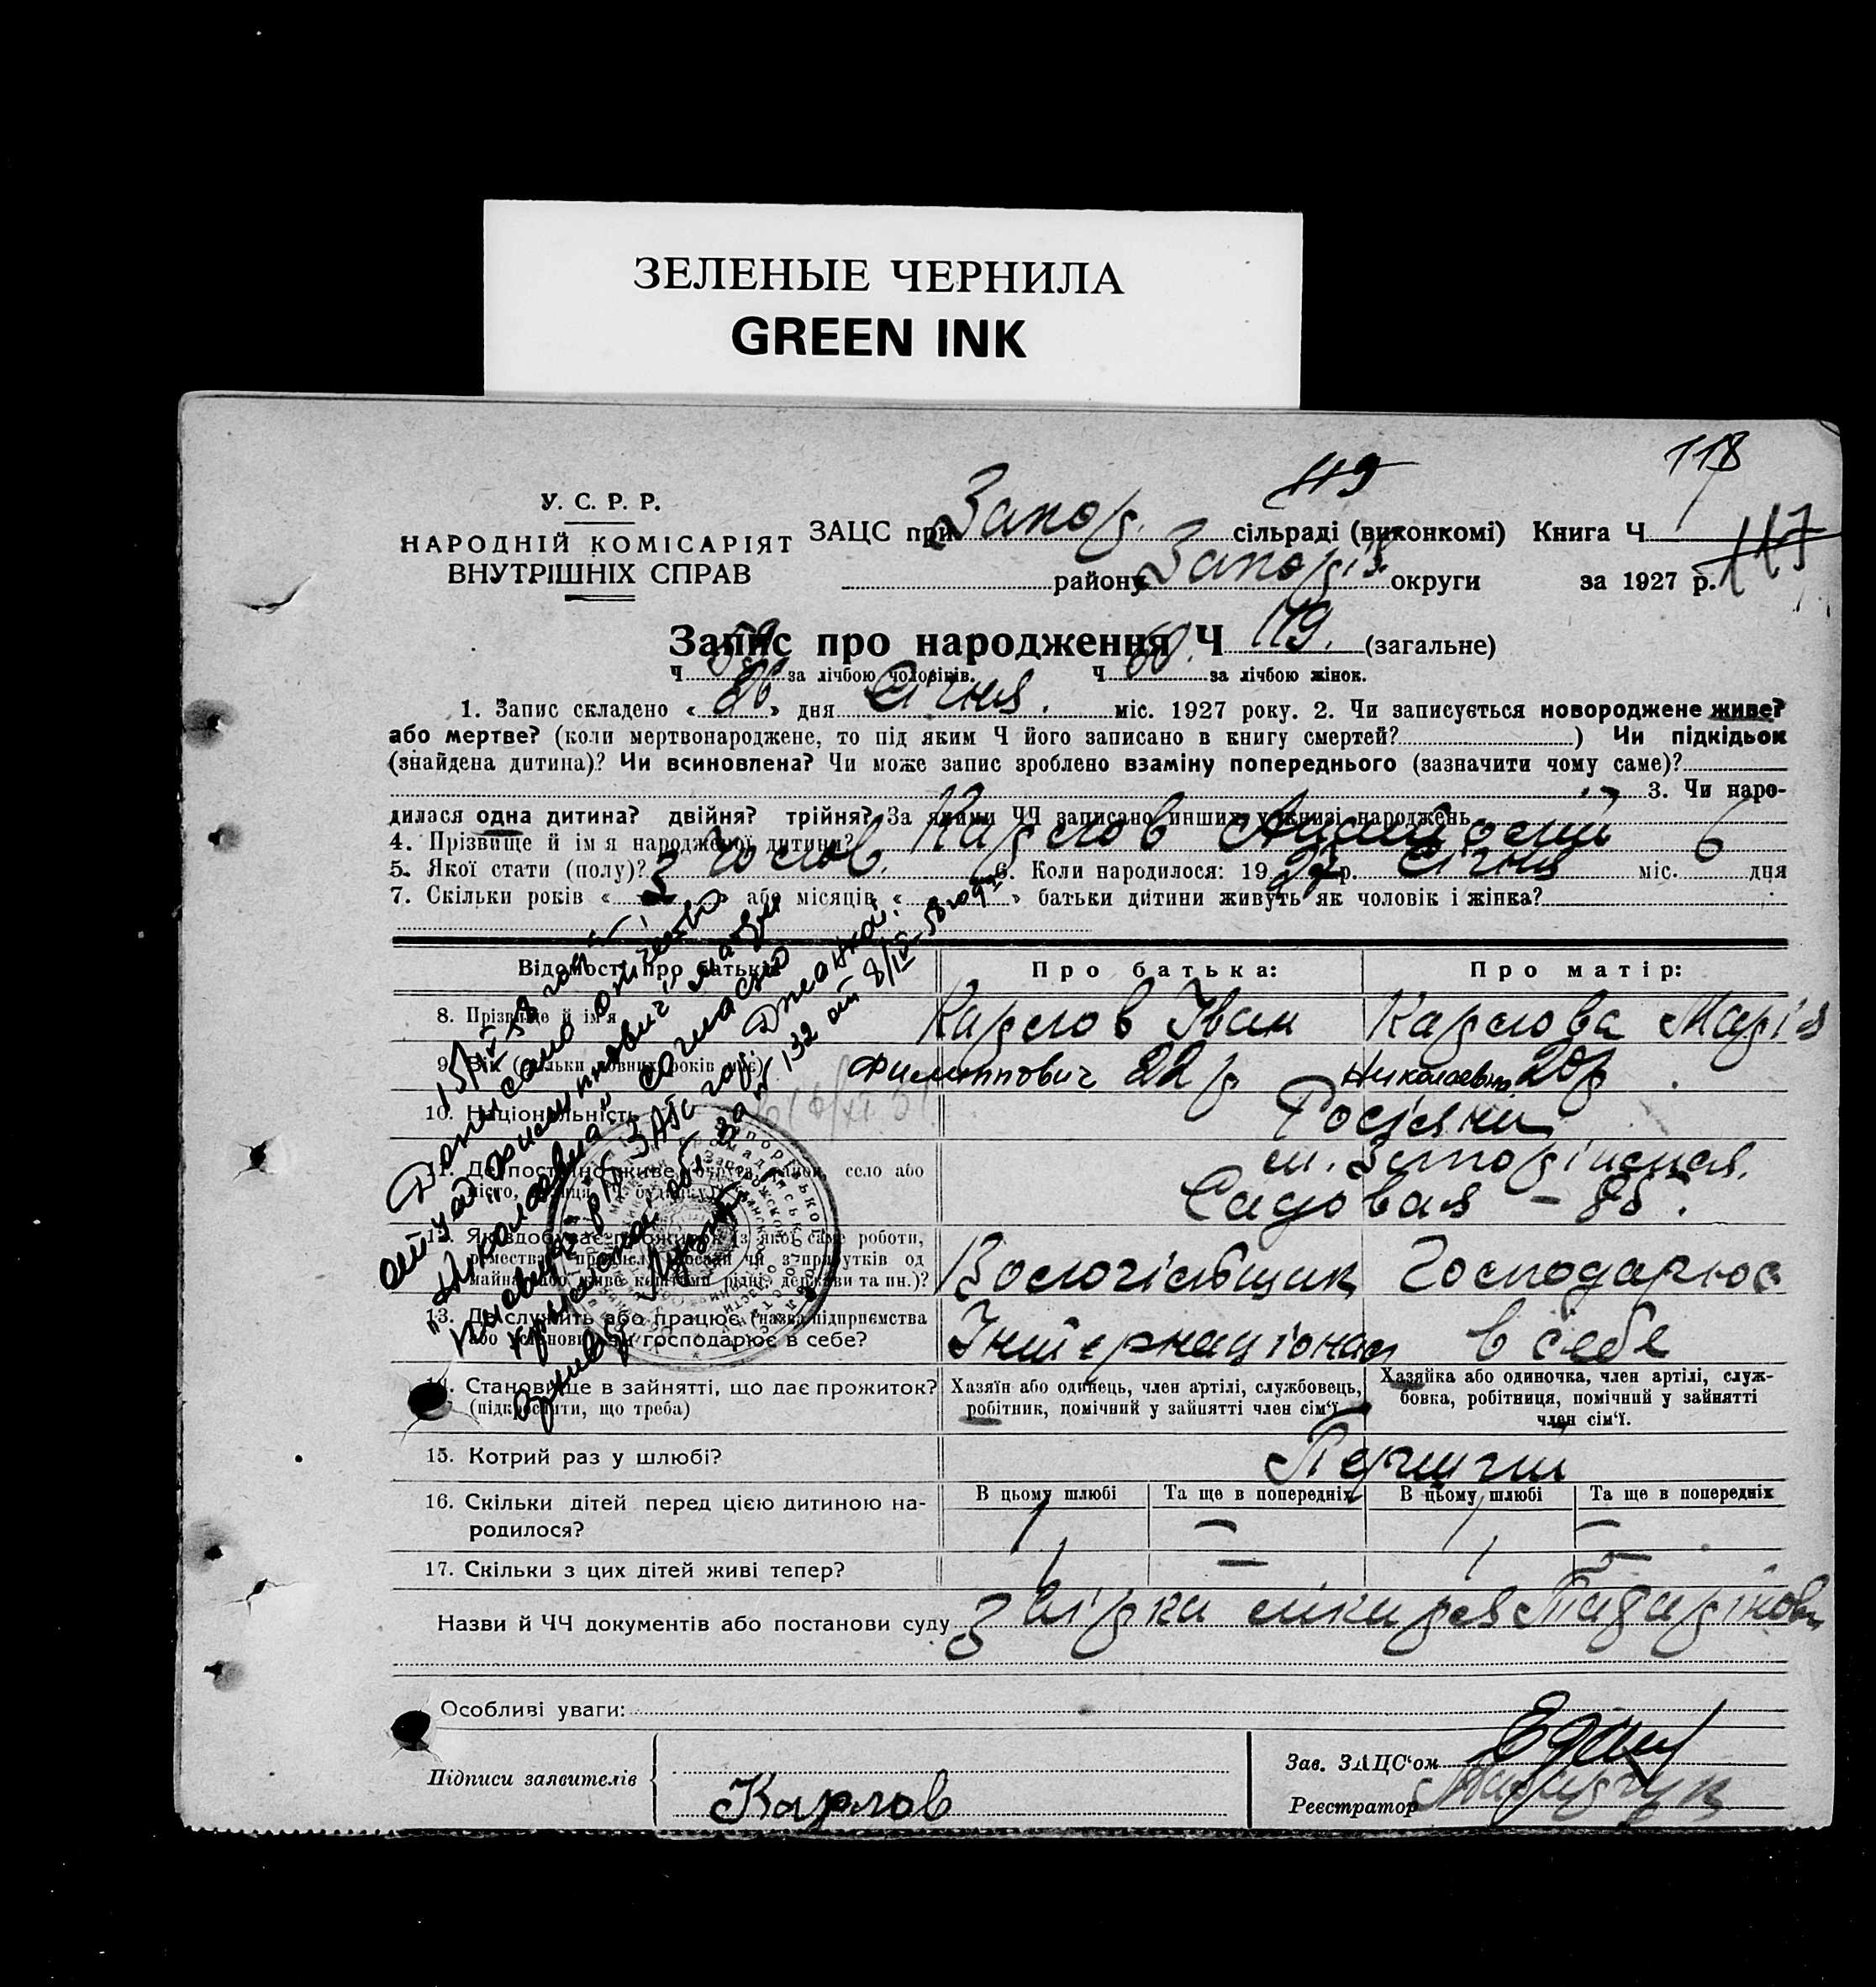 ЗЕЛЕНЫЕ ЧЕРНИЛА
GREEN INK
118
119
У. С. Р. Р.
НАРОДНІЙ КОМІСАРІЯТ
ВНУТРІШНІХ СПРАВ
ЗАЦС при Запор. сільраді (виконкомі) Книга Ч 117
району Запоріз. округи за 1927 р.
Запис про народження Ч 119. (загальне)
Ч 59 за лічбою чоловіків. Ч 60. за лічбою жінок.
1. Запис складено « 26 » дня Січня. міс. 1927 року. 2. Чи записується новороджене живе?
або мертве? (коли мертвонароджене, то під яким Ч його записано в книгу смертей? ) Чи підкідьок
(знайдена дитина)? Чи всиновлена? Чи може запис зроблено взаміну попереднього (зазначити чому саме)?
3. Чи наро-
дилася одна дитина? двійня? трійня? За якими ЧЧ записано инших у книзі народжень
4. Прізвище й ім'я народженої дитини? Карлов
5. Якої стати (полу)? чолов. 6. Коли народилося: 1927 р. Січня міс. 6 дня
7. Скільки років « 3 » або місяців « » батьки дитини живуть як чоловік і жінка?
Відомості про батьків Про батька: Про матір:
8. Прізвище й ім'я Карлов Іван Карлова Марія
9. Вік (скільки повних років має) Филиппович 22 р Николаевна 20 р.
10. Національність Росіяни
11. Де постійно живе (округа, район, село або
місто, вулиця, Ч будинку)? м. Запоріжжя.
Садовая – 85.
12. Як здобуває прожиток (з якої саме роботи,
ремества, промислу, посади чи з прибутків од
майна або живе коштами рідні, держави та ин.)? Господарює
13. Де служить або працює (назва підприємства
або установи) чи господарює в себе? Інтернаціонал в себе
14. Становище в зайнятті, що дає прожиток?
(підкреслити, що треба)
Хазяїн або одинець, член артілі, службовець,
робітник, помічний у зайнятті член сім'ї.
Хазяйка або одиночка, член артілі, служ-
бовка, робітниця, помічний у зайнятті
член сім'ї.
15. Котрий раз у шлюбі? Перший
16. Скільки дітей перед цією дитиною на-
родилося?
В цьому шлюбі Та ще в попередніх В цьому шлюбі Та ще в попередніх
1 — 1 —
17. Скільки з цих дітей живі тепер? 1 — 1 —
Назви й ЧЧ документів або постанови суду Довірка лікаря
Особливі уваги:
Підписи заявителів Карлов
Зав. ЗАЦС'ом
Реєстратор
15/IV-58 года
Дописано отчество
отцу „Филиппович" матери
„Николаевна" согласно
ЗАГС гор. Джанкой
Крымской обл. за № 132 от 8/IV-58 года